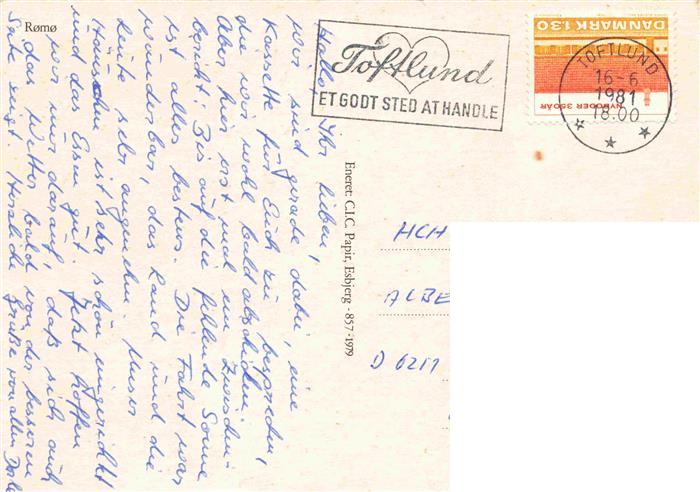 Rømø
Hallo, Ihr lieben,
wir sind gerade dabei, eine
Kassette für Euch zu besprechen,
die wir wohl bald abschicken.
Aber hier erst mal ein Zwischen-
bericht: Bis auf die fehlende Sonne
ist alles bestens. Die Fahrt war
wunderbar, das Land und die
Leute sehr angenehm. Unser
Häuschen ist sehr schön eingerichtet
und das Essen gut. Jetzt hoffen
wir nur darauf, daß sich auch
das Wetter bald von der besseren
Seite zeigt. Herzliche Grüße von allen
Eneret: C.I.C. Papir, Esbjerg - 857 - 1979
Toftlund
ET GODT STED AT HANDLE
DANMARK 1.30
NYBODER 350 ÅR
TOFTLUND
16-6
1981
18.00
HCH
ALBE
D 6211